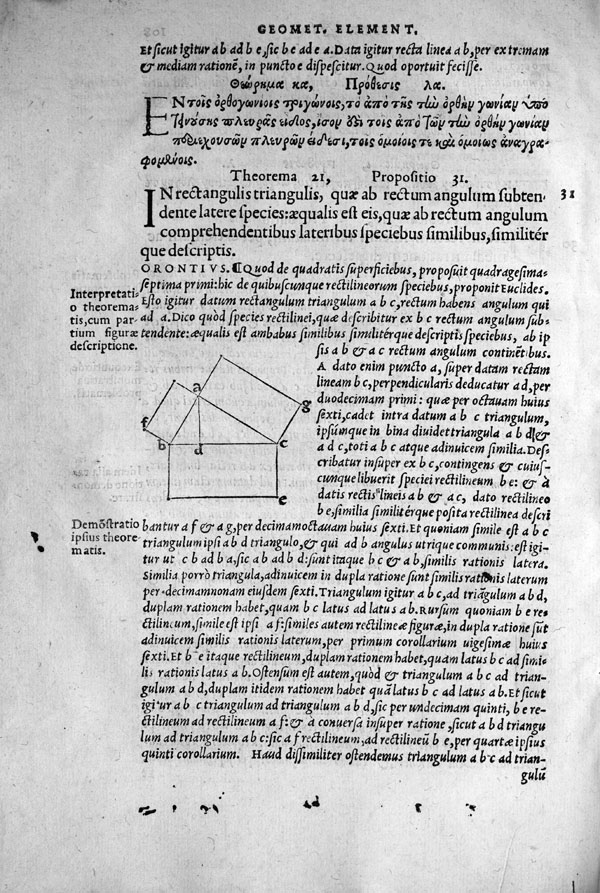 GEOMET. ELEMENT.
Et sicut igitur a b ad b e, sic b e ad e a. Data igitur recta linea a b, per extremam
& mediam rationẽ, in puncto e dispescitur. Quod oportuit fecisse.
Θεώρημα κα, Πρόθεσις λα.
ΕΝ τοῖς ὀρθογωνίοις τριγώνοις, τὸ ἀπὸ τῆς τὴν ὀρθὴν γωνίαν ὑπο
πλευρᾶς εἶδος, ἴσον τοῖς ἀπὸ τῶν τὴν ὀρθὴν γωνίαν
πλευρῶν εἴδεσι, τοῖς ὁμοίοις τε καὶ ὁμοίως ἀναγρα-
φομένοις.
Theorema 21, Propositio 31.
IN rectangulis triangulis, quæ ab rectum angulum subten- 31
dente latere species: æqualis est eis, quæ ab rectum angulum
comprehendentibus lateribus speciebus similibus, similitér
que descriptis.
ORONTIVS. ¶Quod de quadratis superficiebus, proposuit quadragesima-
septima primi: hic de quibuscunque rectilineorum speciebus, proponit Euclides.
Interpretati-
o theorema-
tis, cum par-
tium figuræ
descriptione.
Esto igitur datum rectangulum triangulum a b c, rectum habens angulum qui
ad a. Dico quòd species rectilinei, quæ describitur ex b c rectum angulum sub-
tendente: æqualis est ambabus similibus similitérque descriptis speciebus, ab ip
sis a b & a c rectum angulum continẽtibus.
A dato enim puncto a, super datam rectam
lineam b c, perpendicularis deducatur a d, per
duodecimam primi: quæ per octauam huius
sexti, cadet intra datum a b c triangulum,
ipsúmque in bina diuidet triangula a b d &
a d c, toti a b c atque adinuicem similia. Des
cribatur insuper ex b c, contingens & cuius-
cunque libuerit speciei rectilineum b e: & à
datis rectis lineis a b & a c, dato rectilineo
b e, similia similitérque posita rectilinea descri
a
f
g
b
d
c
e
Demõstratio
ipsius theore
matis.
bantur a f & a g, per decimamoctauam huius sexti. Et quoniam simile est a b c
triangulum ipsi a b d triangulo, & qui ad b angulus utrique communis: est igi-
tur ut c b ad b a, sic a b ad b d: sunt itaque b c & a b, similis rationis latera.
Similia porrò triangula, adinuicem in dupla ratione sunt similis rationis laterum
per decimamnonam eiusdem sexti. Triangulum igitur a b c, ad triãgulum a b d,
duplam rationem habet, quam b c latus ad latus a b. Rursum quoniam b e re-
ctilineum, simile est ipsi a f: similes autem rectilineæ figuræ, in dupla ratione sũt
adinuicem similis rationis laterum, per primum corollarium uigesimæ huius
sexti. Et b e itaque rectilineum, duplam rationem habet, quam latus b c ad simi-
lis rationis latus a b. Ostensum est autem, quòd & triangulum a b c ad trian-
gulum a b d, duplam itidem rationem habet quã latus b c ad latus a b. Et sicut
igitur a b c triangulum ad triangulum a b d, sic per undecimam quinti, b e re-
ctilineum ad rectilineum a f: & à conuersa insuper ratione, sicut a b d triangu
lum ad triangulum a b c: sic a f rectilineum, ad rectilineũ b e, per quartæ ipsius
quinti corollarium. Haud dissimiliter ostendemus triangulum a b c ad trian-
gulũ